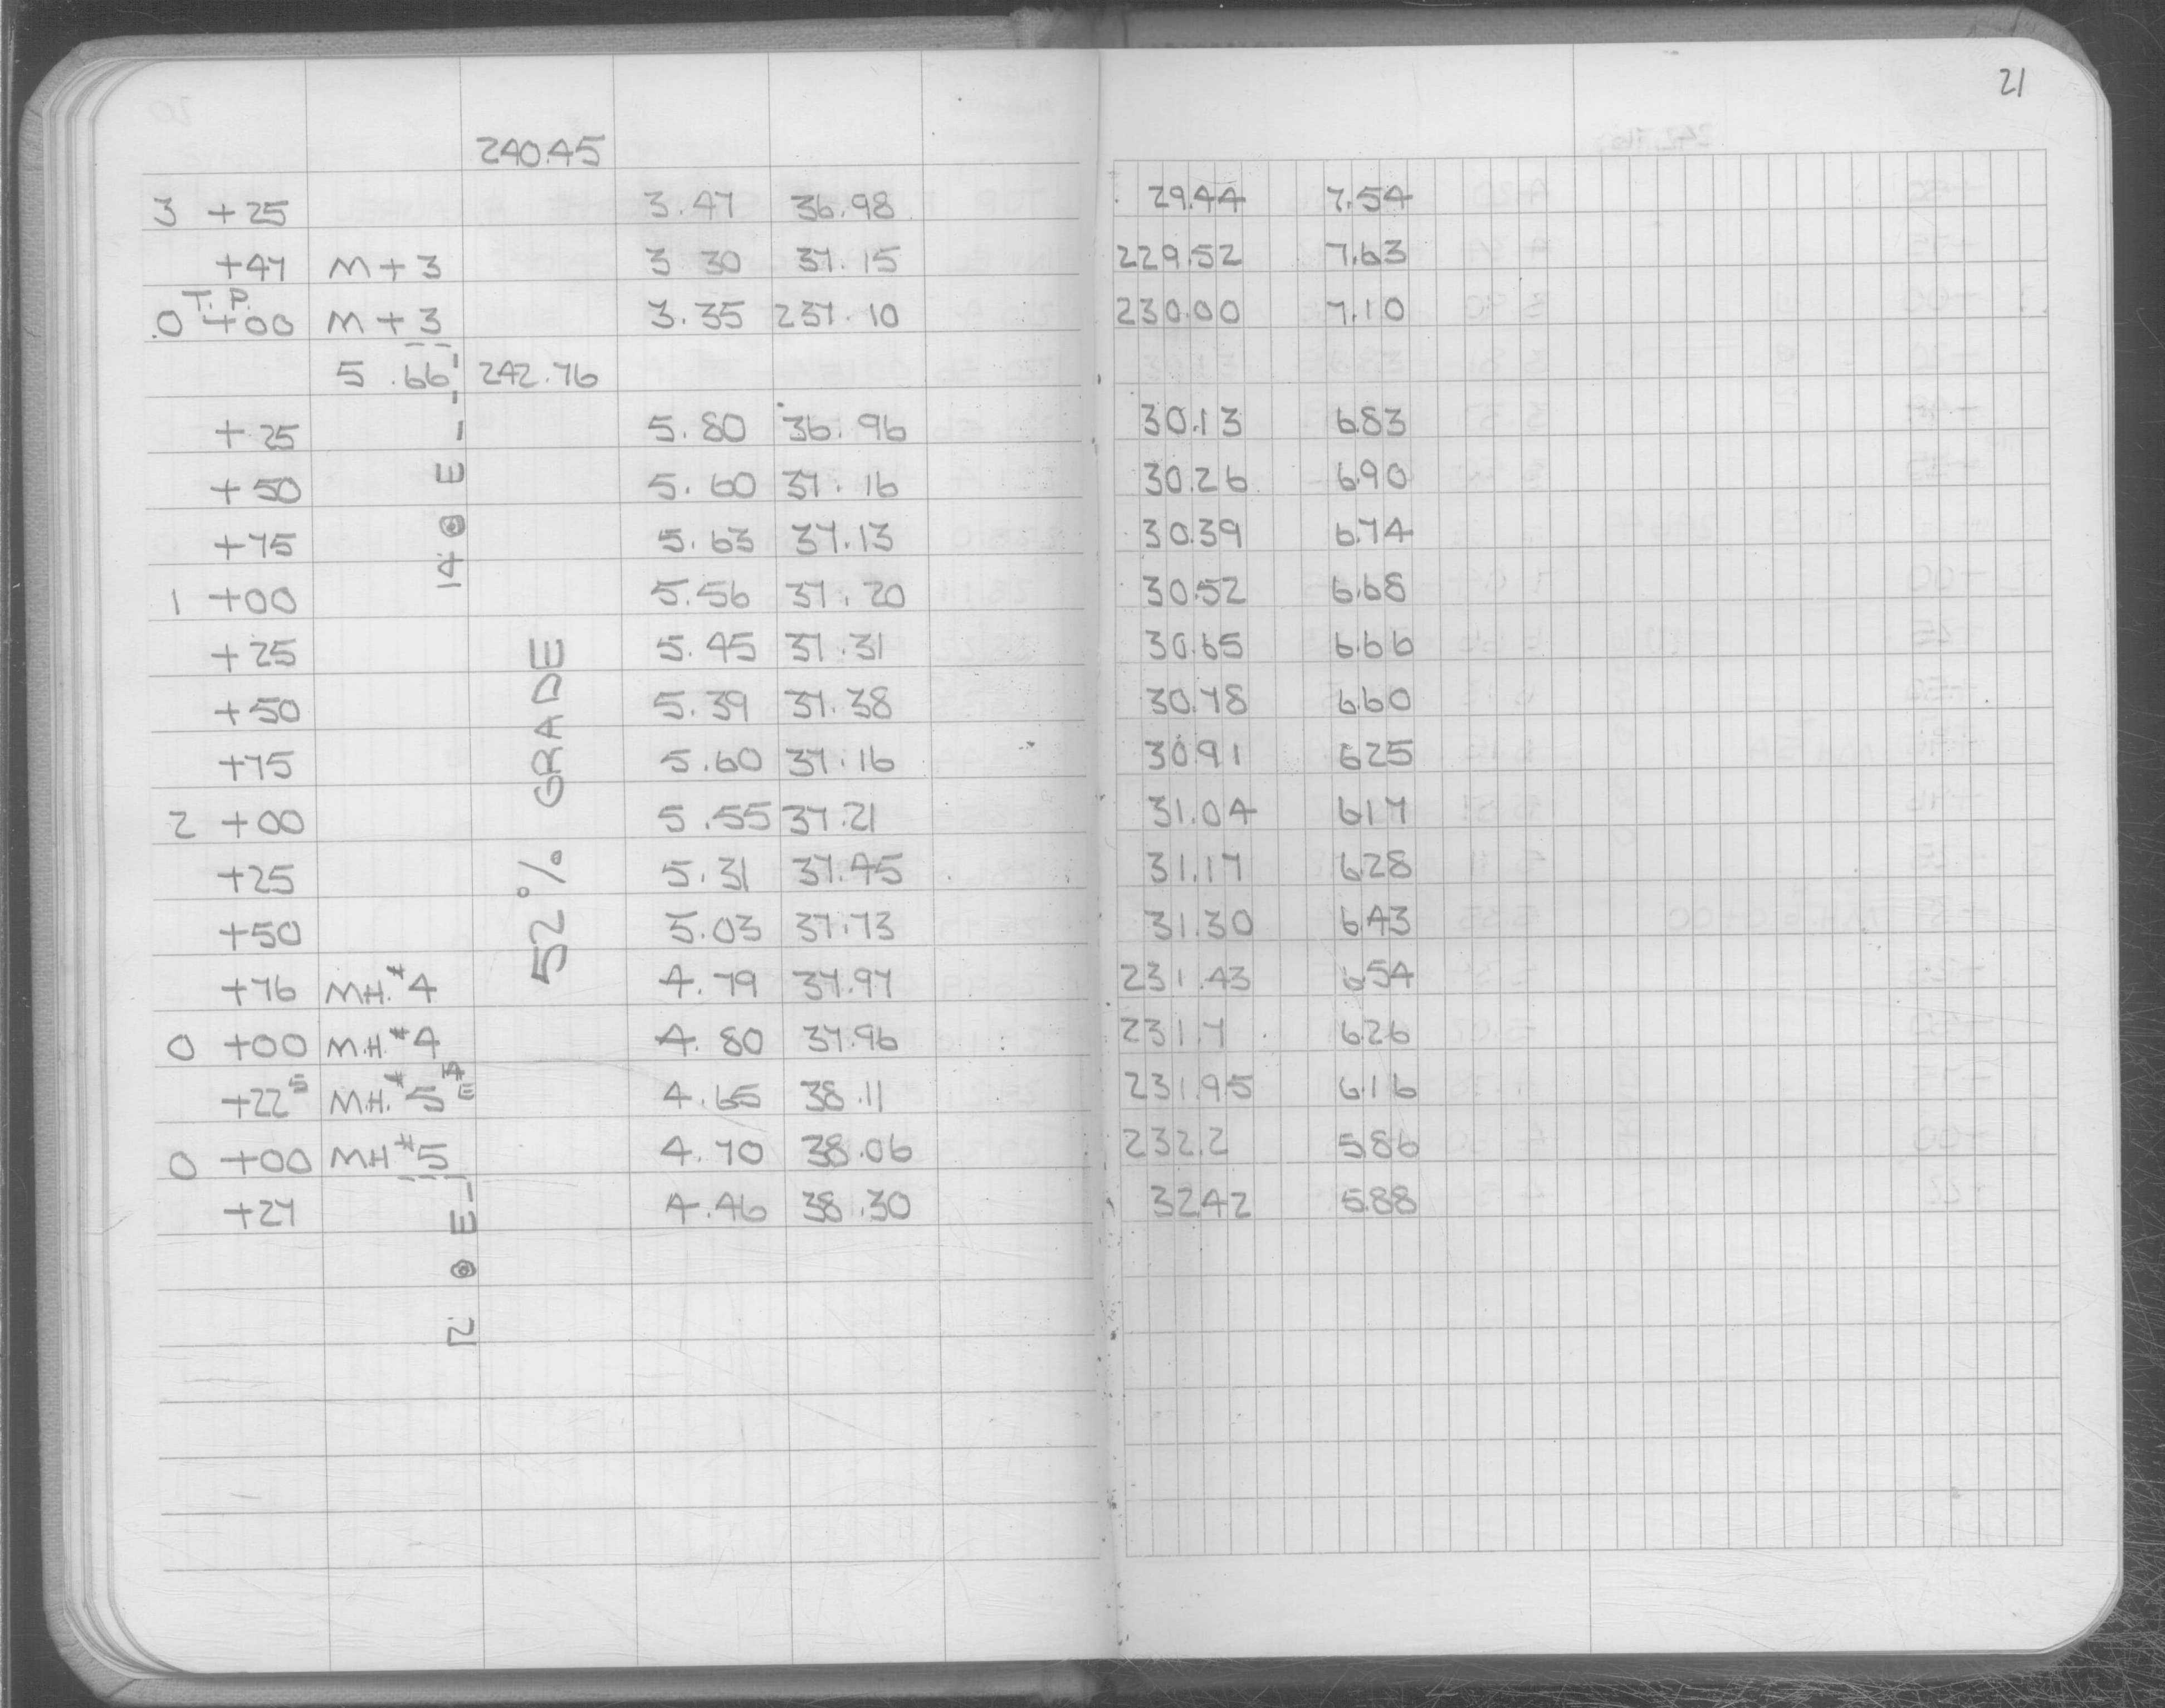 21
240.45
3 +25 3.47 36.98 29.44 7.54
+47 M+3 3 30 37.15 229.52 7.63
T.P.
0 +00 M+3 3.35 237.10 230.00 7.10
5.66 242.76
+25 5.80 36.96 30.13 6.83
+50 5.60 37.16 30.26 6.90
+75 5.63 37.13 30.39 6.74
1 +00 5.56 37.20 30.52 6.68
+25 5.45 37.31 30.65 6.66
+50 5.39 37.38 30.78 6.60
+75 5.60 37.16 30.91 625
2 +00 5.55 37.21 31.04 617
+25 5.31 37.45 31.17 628
+50 5.03 37.73 31.30 643
+76 M.H.#4 4.79 37.97 231.43 654
0 +00 M.H.#4 4.80 37.96 231.7 626
+22⁵ M.H.#5 4.65 38.11 231.95 616
0 +00 MH#5 4.70 38.06 232.2 586
+27 4.46 38.30 3242 588
14 @ E
52% GRADE
12 @ E